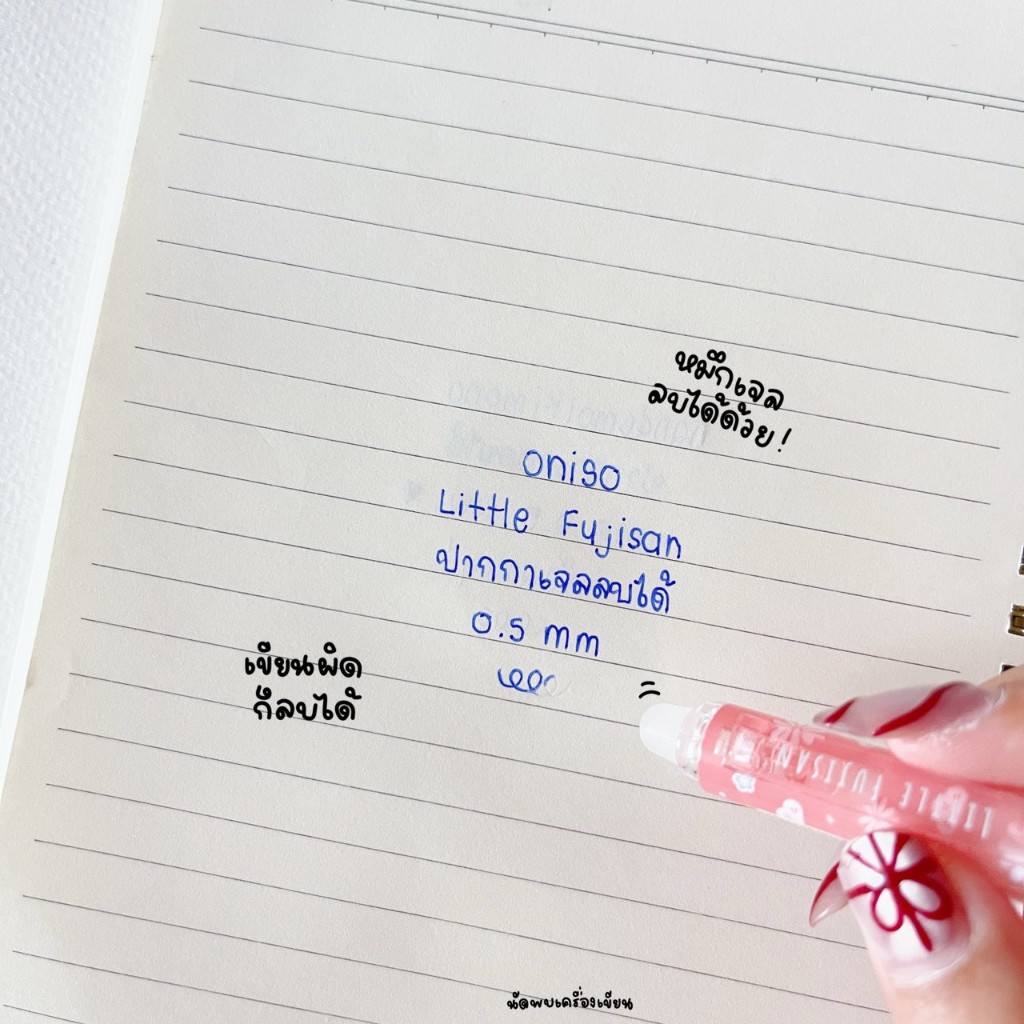 หมึกเจล
ลบได้ด้วย!
oniso
Little Fujisan
ปากกาเจลลบได้
0.5 mm
เขียนผิด
ก็ลบได้
LITTLE FUJISAN
นัดพบเครื่องเขียน